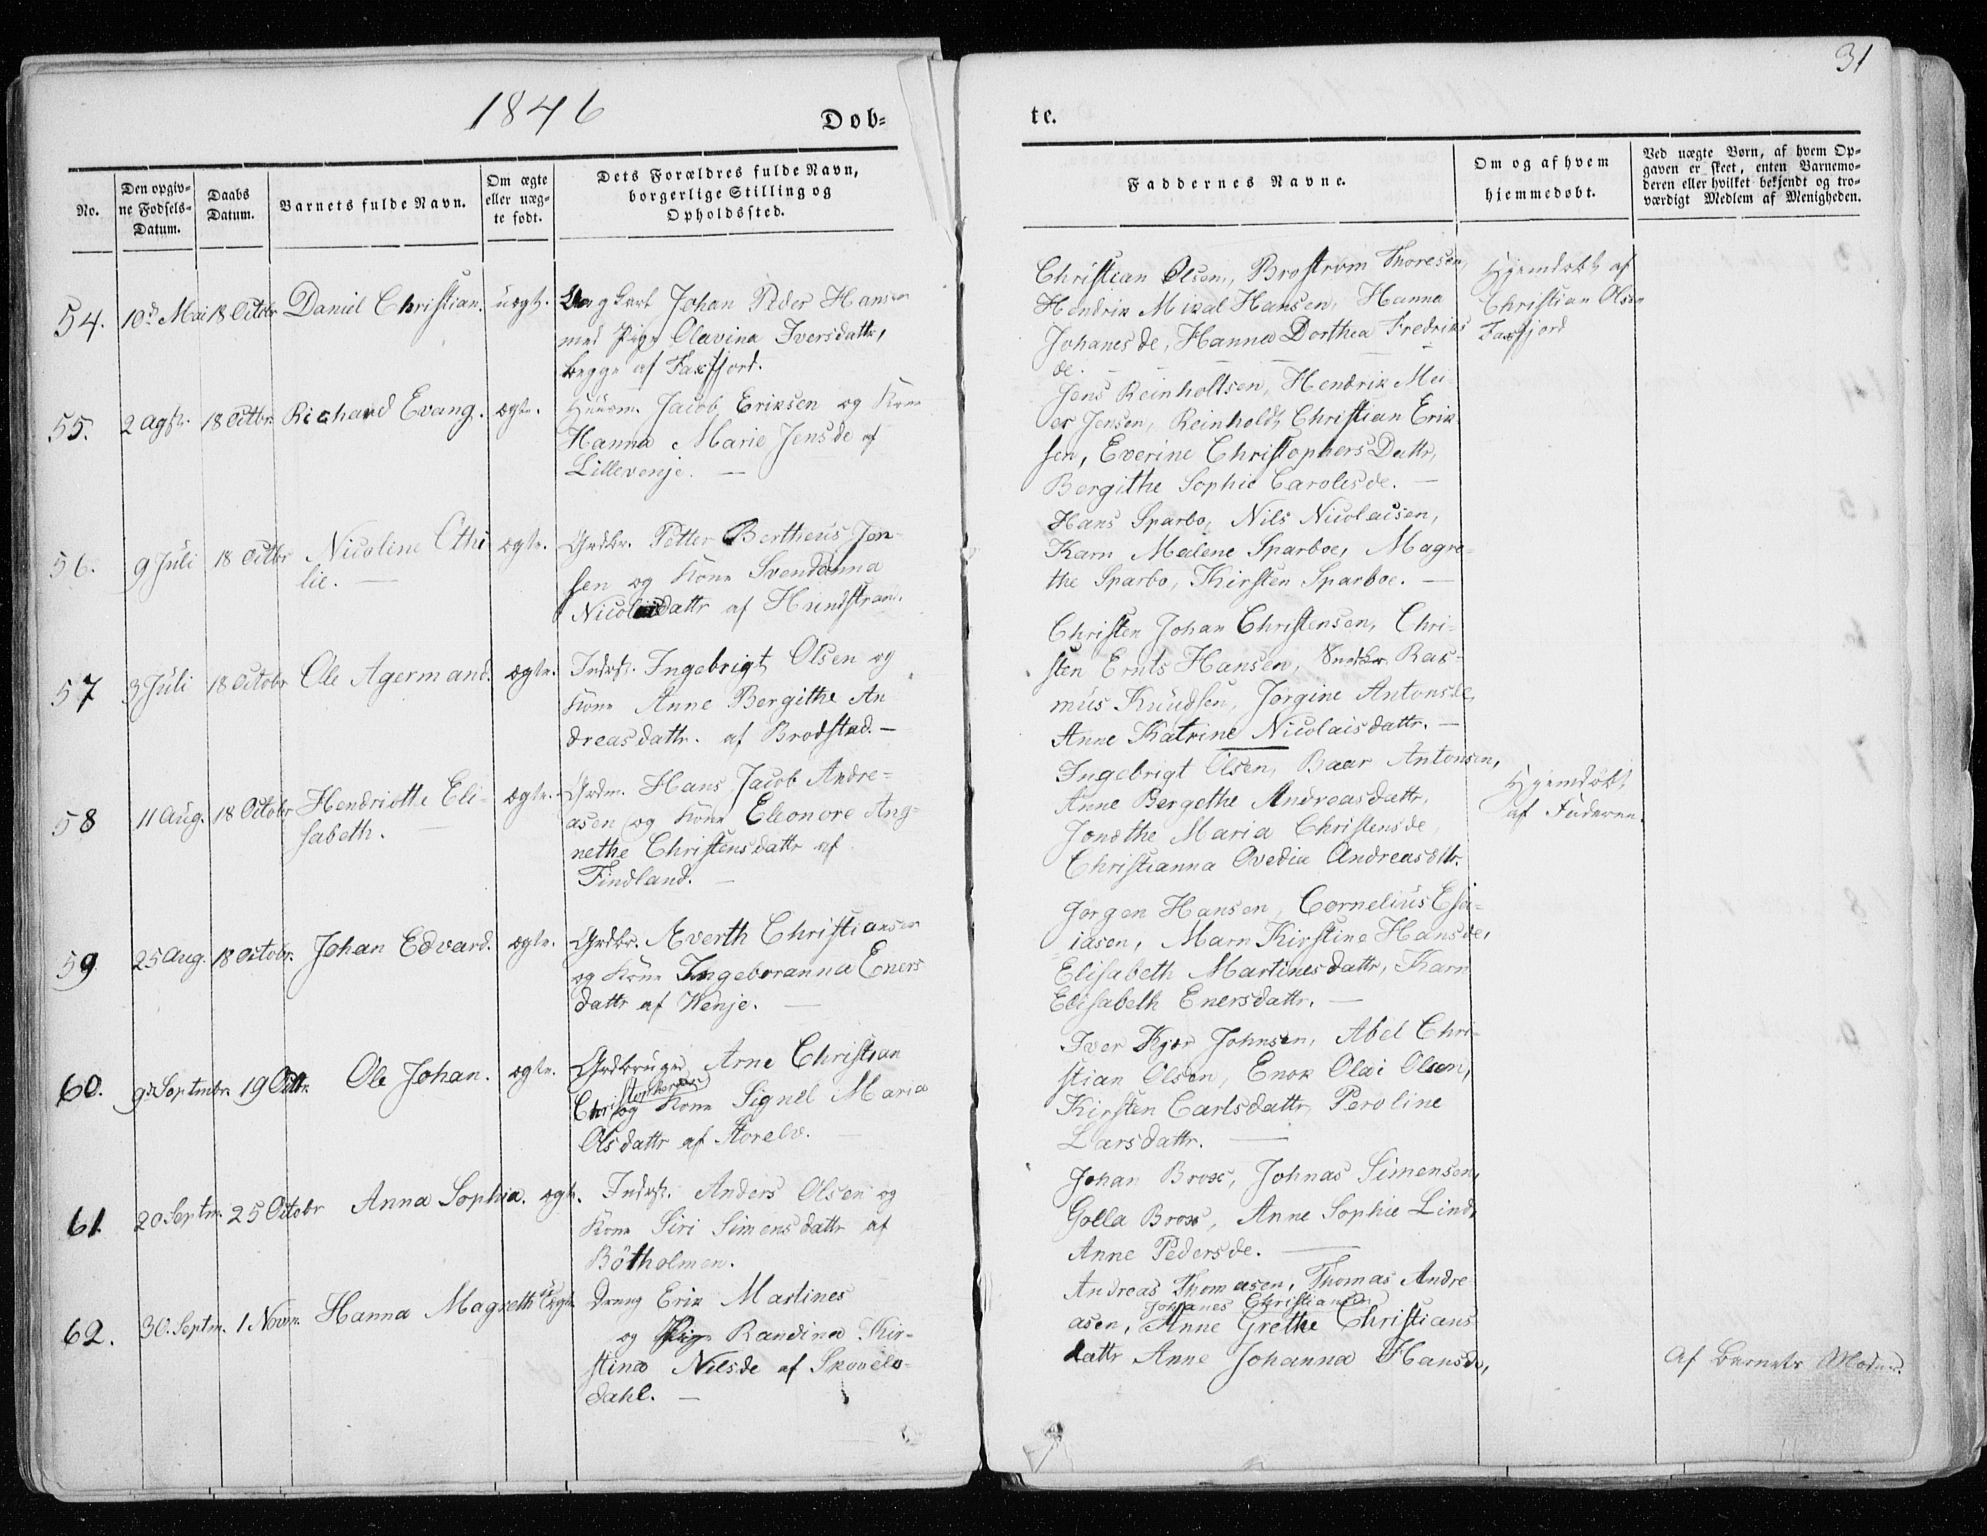 1846
Døb=
te.
31
No.
Den opgiv=
ne Fødsels=
Datum.
Daabs
Datum.
Barnets fulde Navn.
Om ægte
eller uæg=
te født.
Dets Forældres fulde Navn,
borgerlige Stilling og
Opholdssted.
Faddernes Navne.
Om og af hvem
hjemmedøbt.
Ved uægte Børn, af hvem Op=
gaven er skeet, enten Barnemo=
deren eller hvilket bekjendt og tro=
værdigt Medlem af Menigheden.
54. 10d Mai 18 Octobr Daniel Christian. uægt. Johan Peder Hansen
med Pige Olavina Iversdattr,
begge af Faxfjord.
Christian Olsen, Brostrøm Thoresen,
Hendrik Mikal Hansen, Hanna
Johanesde, Hanna Dorthea Fredriks
de.
Hjemdøbt af
Christian Olsen
Faxfjord
55. 2 Agst. 18 Octbr. Richard Evang. ægte. Huusm. Jacob Eriksen og Kone
Hanna Marie Jensde af
Lillevenje. —
Jens Reinholtsen, Hendrik Mei-
er Jensen, Reinholdt Christian Erik-
sen, Everine Christophers Dattr,
Bergithe Sophie Carolesde. —
56. 9 Juli 18 Octbr Nicoline Othi
lie. —
ægte. Grdbr. Petter Bertheus Jen-
sen og Kone Svendanna
Nicolaidattr af Hundstrand.
Hans Sparbo, Nils Nicolaisen,
Karn Malene Sparboe, Magre-
the Sparbo, Kirsten Sparboe. —
57 3 Juli 18 Octobr Ole Agermand. ægte. Indrst. Ingebrigt Olsen og
Kone Anne Bergithe An
dreasdattr. af Brodstad. —
Christen Johan Christensen, Chri-
sten Ernts Hansen, Ras-
mus Knudsen, Jørgine Antonsde,
Anne Katrine Nicolaisdattr. —
58 11 Aug. 18 Octobr Hendriette Eli-
sabeth. —
ægte. Grdm. Hans Jacob Andre-
asen og Kone Eleonore Ang-
nethe Christensdattr af
Findland. —
Ingebrigt Olsen, Baar Antonsen,
Anne Bergethe Andreasdattr,
Jonethe Maria Christensde,
Christianna Ovedia Andreasdttr.
Hjemdøbt
af Faderen.
59 25 Aug. 18 Octobr. Johan Edvard. ægte. Grdbr. Everth Christiansen
og Kone Ingeboranna Eners
dattr af Wenje. —
Jørgen Hansen, Cornelius Esa-
iasen, Marn Kirstine Hansde,
Elisabeth Martinesdattr, Karn
Elisabeth Enersdattr. —
60. 9d Septmbr. 19 Octr. Ole Johan. ægte. Grdbruger Arne Christian
Christophersen
og Kone Signel Maria
Olsdattr af Storelv. —
Iver Kjær Johnsen, Abel Chri-
stian Olsen, Enok Olai Olsen,
Kirsten Carlsdattr, Peroline
Larsdattr. —
61. 20 Septm. 25 Octobr Anna Sophia. ægt. Indrst. Anders Olsen og
Kone Siri Simensdattr af
Bøtholmen.
Johan Brox, Johnas Simensen,
Golla Brox, Anne Sophie Lind,
Anne Pedersde. —
62. 30. Septm. 1 Novm. Hanna Magreth uægte Dreng Erik Martines
og Pige Randina Kir-
stina Nilsde af Skovelv-
dahl. —
Andreas Thomasen, Thomas Andre
Johanes Christiansen
asen, Anne Grethe Christians
dattr Anne Johanna Hansde,
Af barnets Moder.